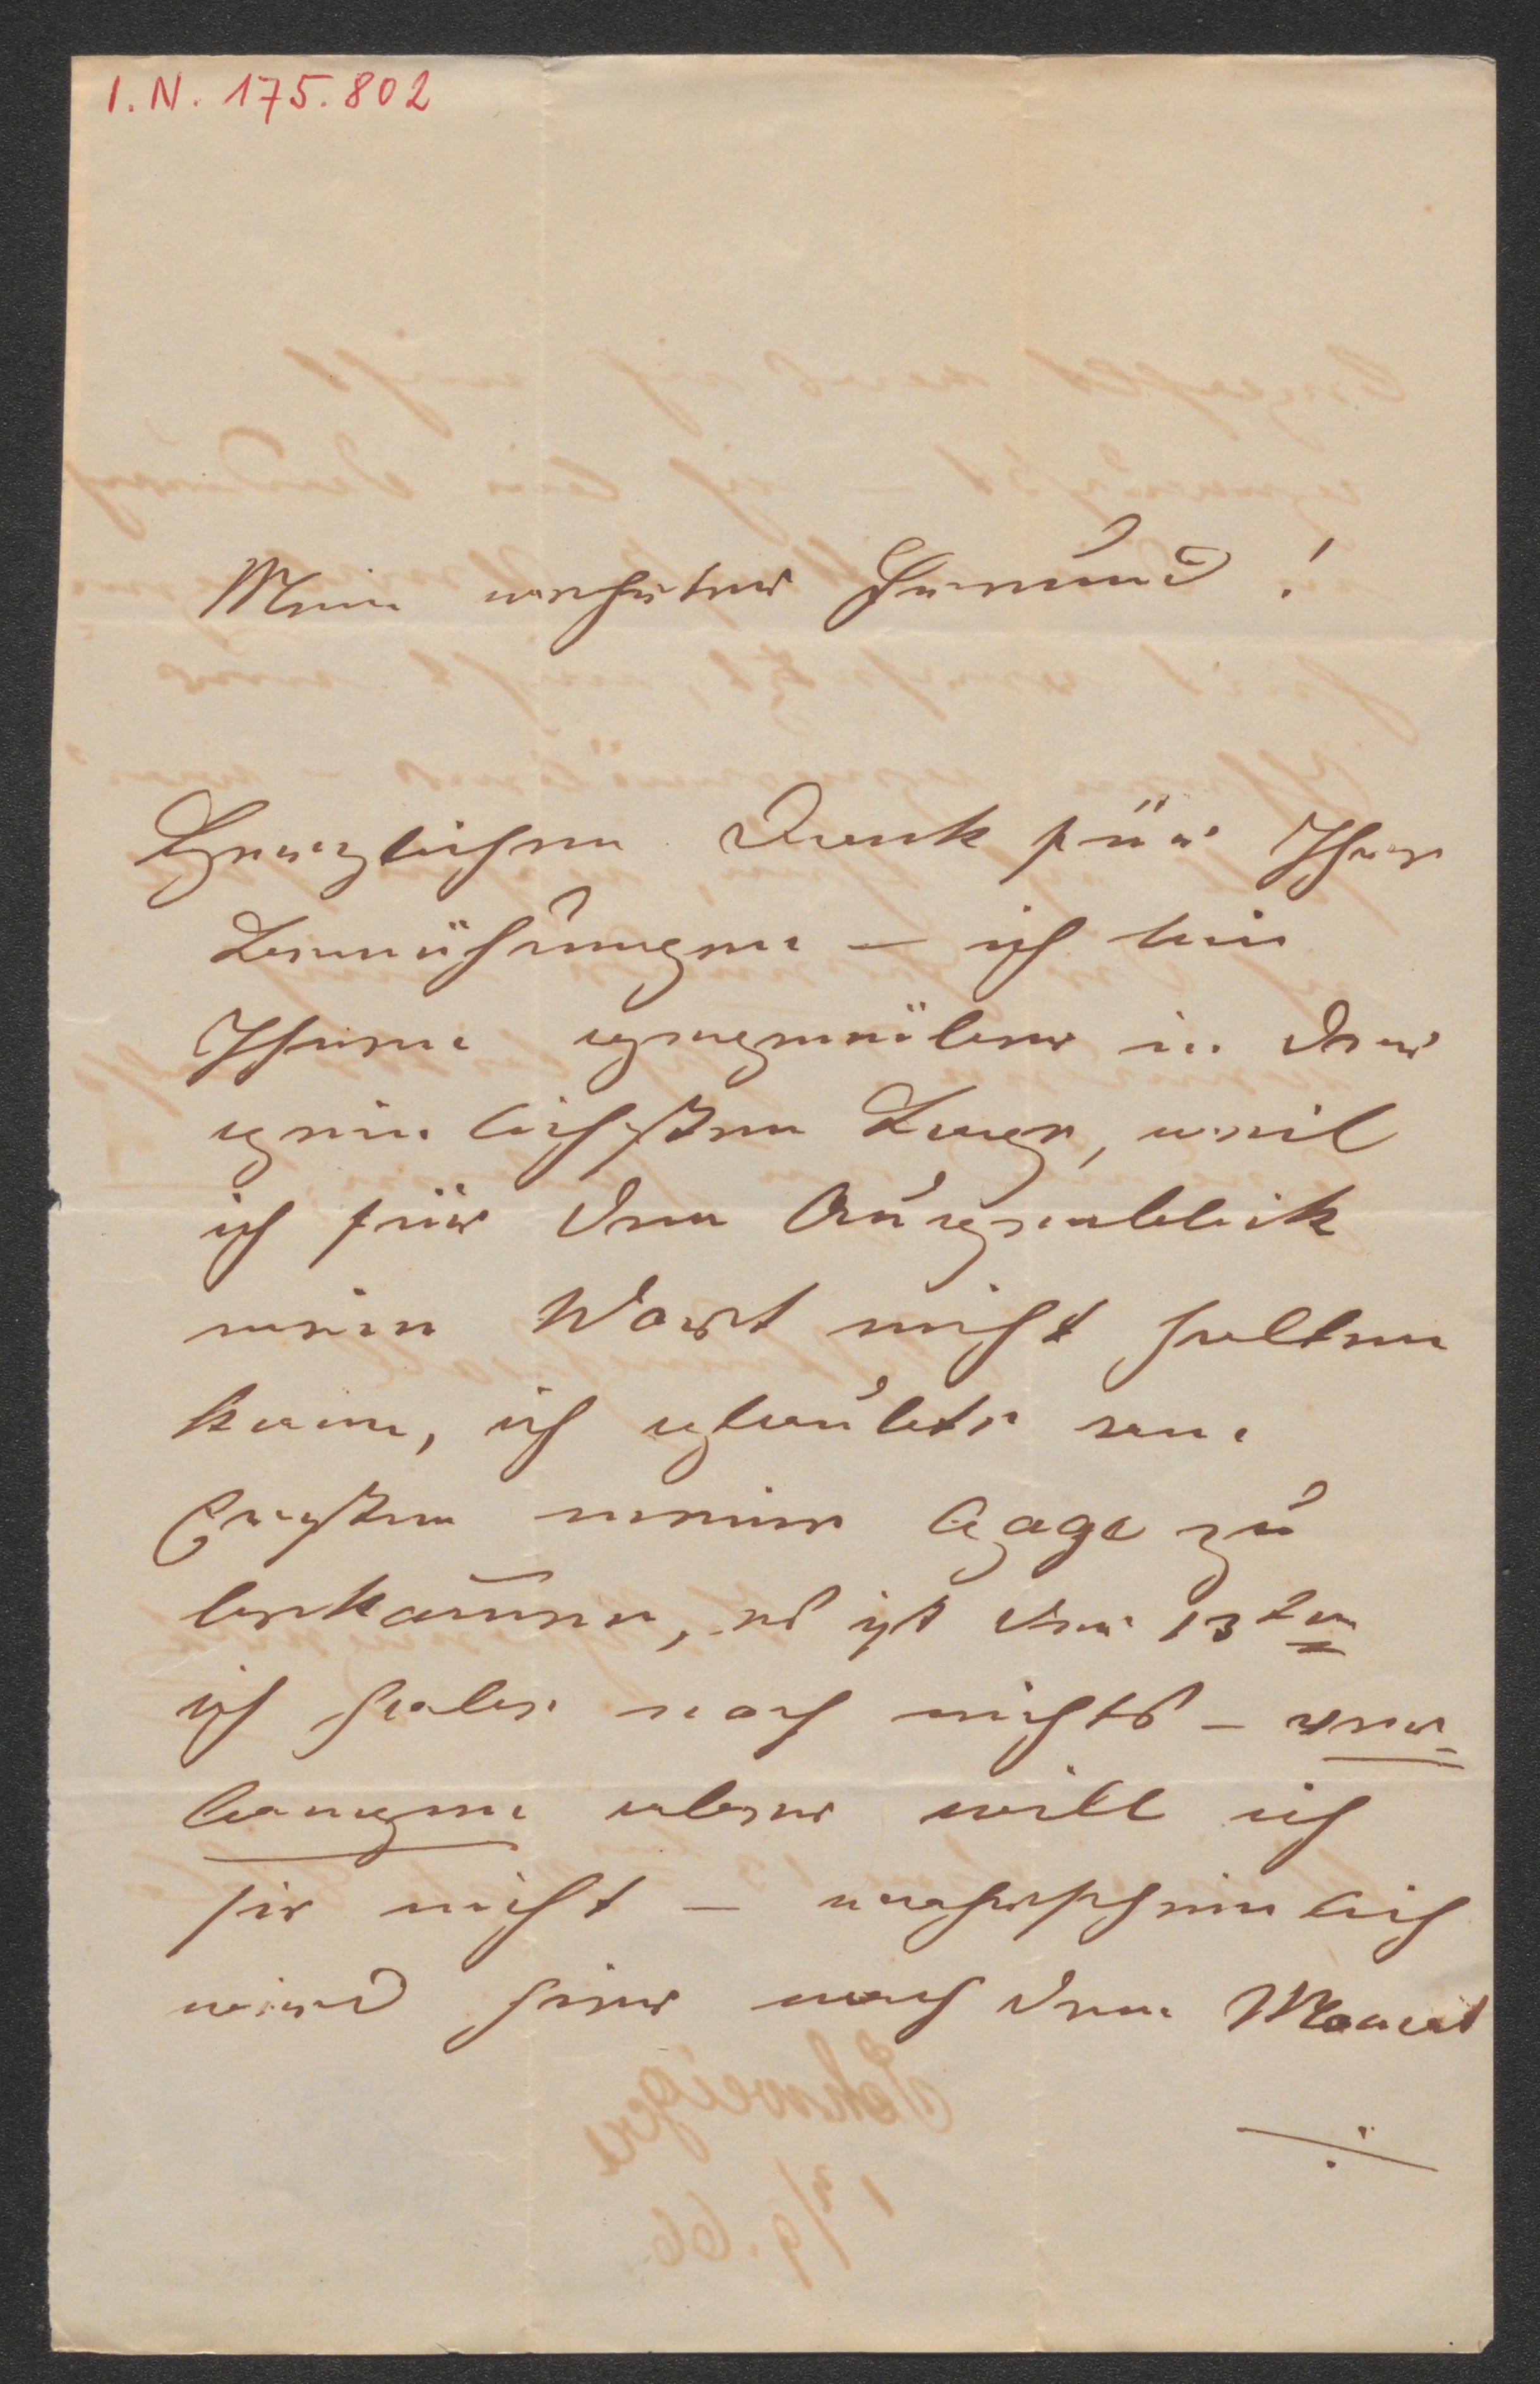 I. N. 175.802
Mein verehrter Freund!
Herzlichen Dank für Ihre
Bemühungen – ich bin
Ihnen gegenüber in der
peinlichsten Lage, weil
ich für den Augenblick
mein Wort nicht halten
kann, ich glaubte am
Ersten meine Gage zu
bekommen, es ist der 13ten
ich habe noch nichts – ver-
langen aber will ich
sie nicht – wahrscheinlich
wird hier nach dem Monat